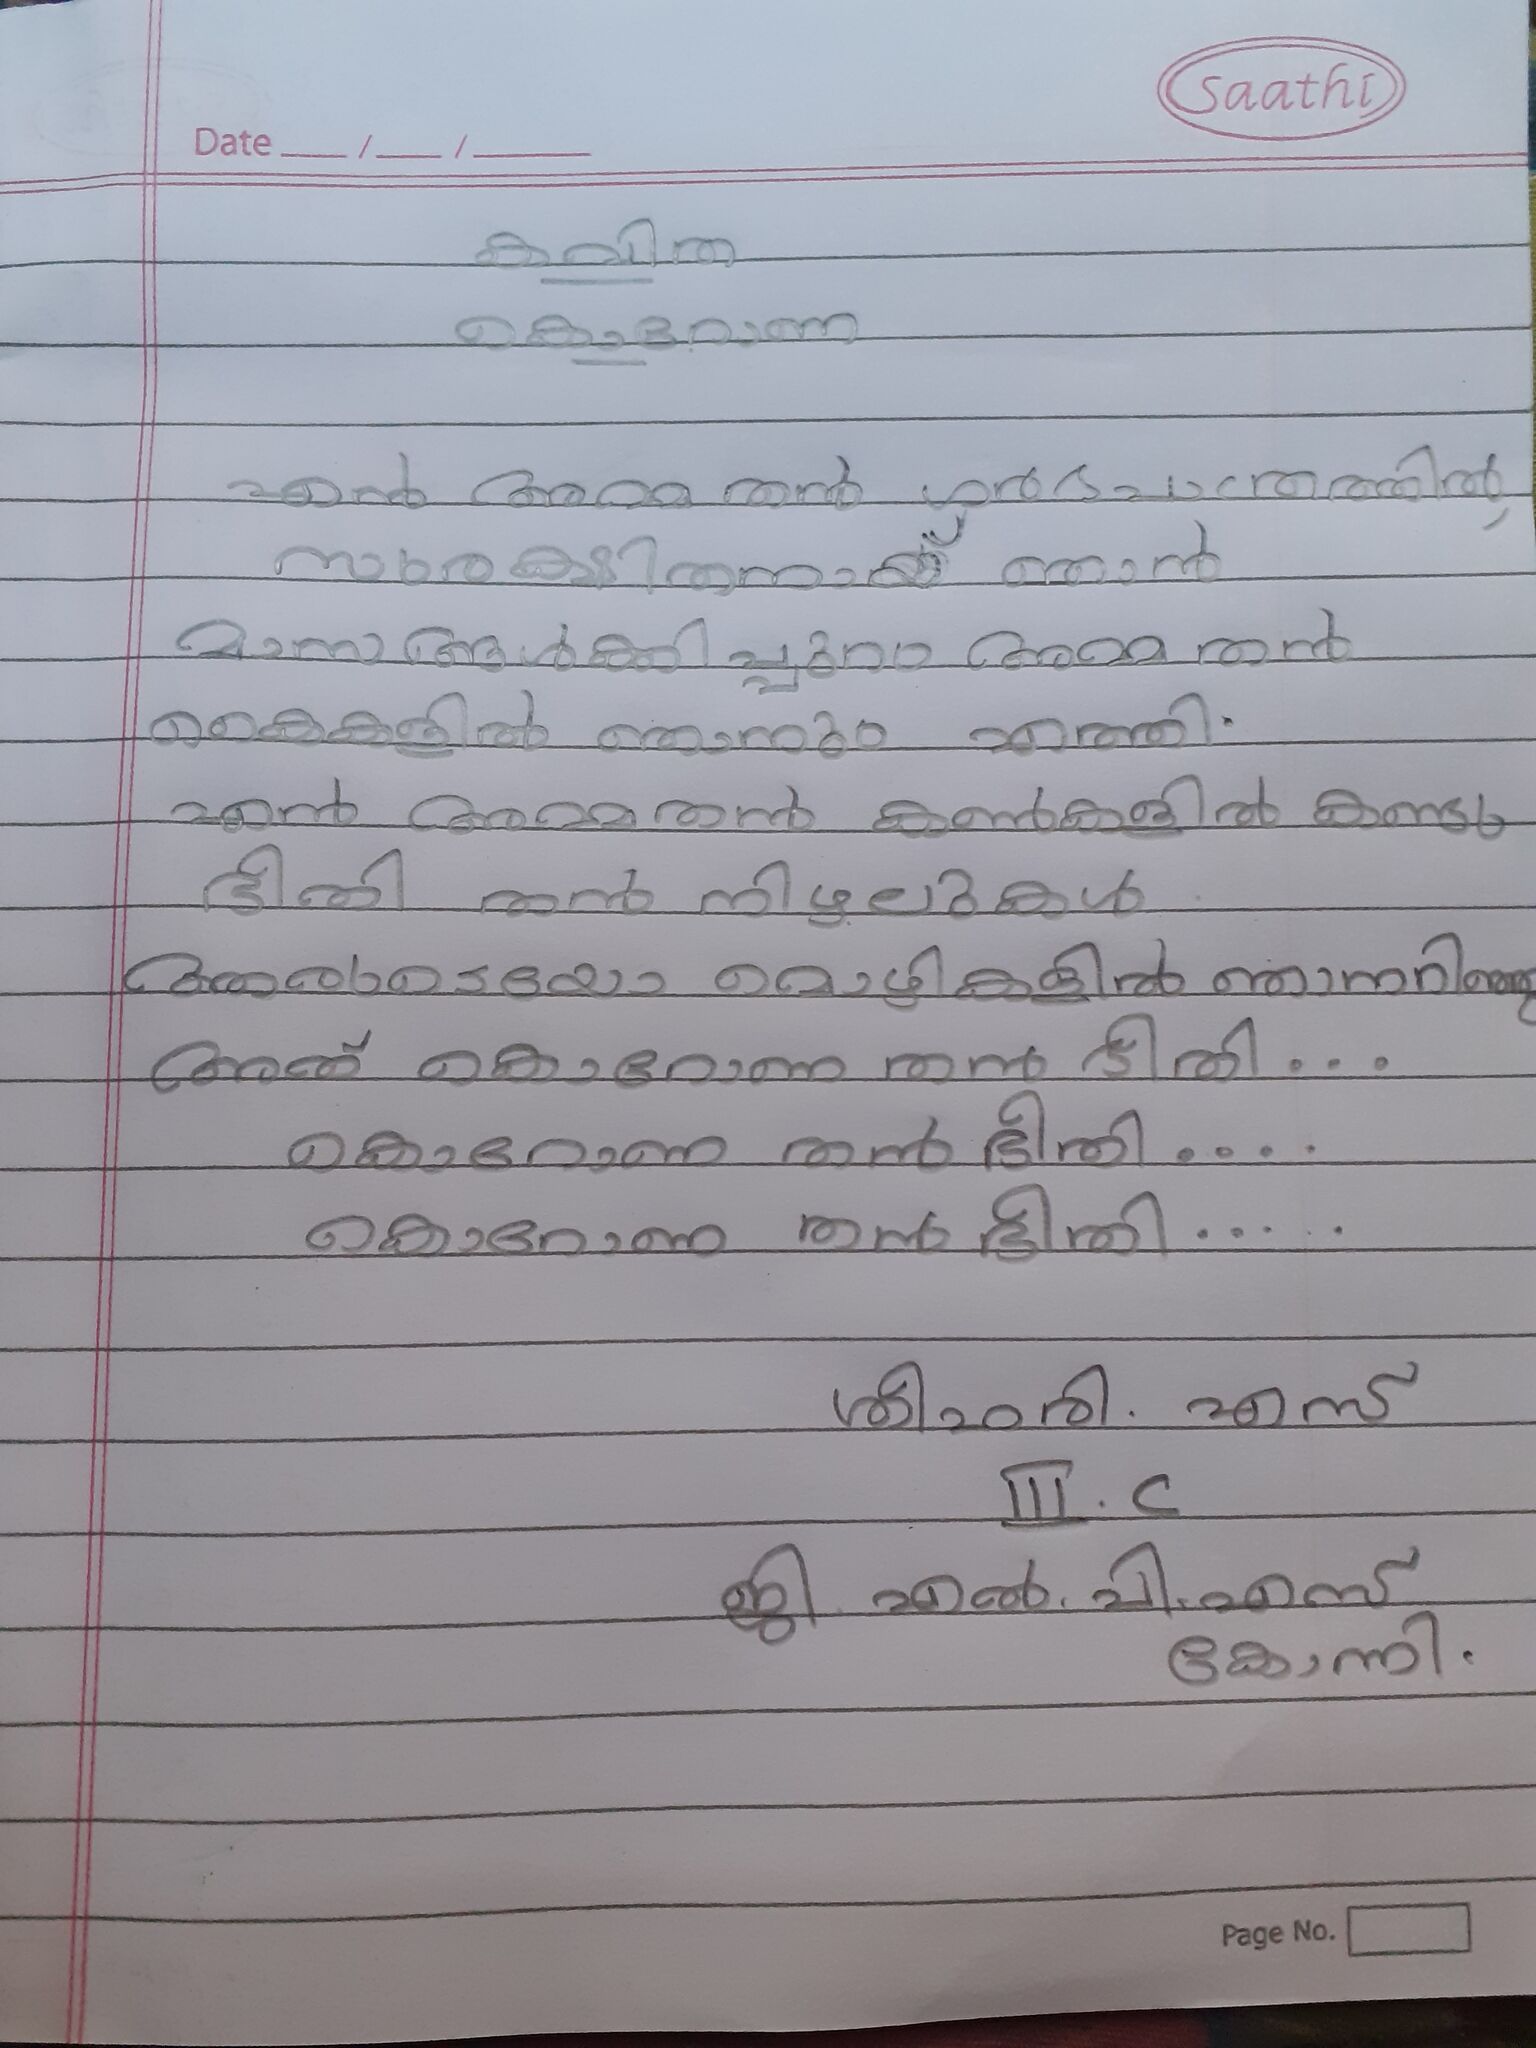 saathi
Date ___/___/_____
കവിത
കൊറോണ
എൻ അമ്മ തൻ ഗർഭപാത്രത്തിൽ,
ഞാൻ
മാസങ്ങൾക്കിപ്പുറം അമ്മ തൻ
കൈകളിൽ ഞാനും എത്തി.
എൻ അമ്മതൻ കൺകളിൽ കണ്ടു
ഭീതി തൻ നിഴലുകൾ
മൊഴികളിൽ ഞാനറിഞ്ഞു
അത് കൊറോണ തൻ ഭീതി...
കൊറോണ തൻ ഭീതി....
കൊറോണ തൻ ഭീതി.....
ശ്രീഹരി. എസ്
III. C
ജി. എൽ. പി. എസ്
കോന്നി.
Page No.